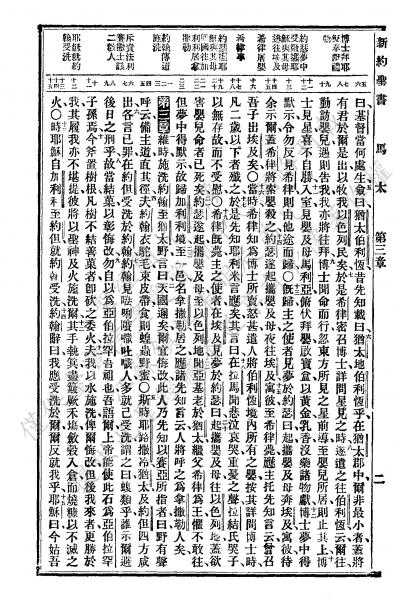 新約聖書 馬太 第三章 二
博士拜耶穌奉禮物
約瑟夢中受警攜耶穌逃往埃及
希律屠嬰
希律卒
約瑟攜耶穌與其母回國往加利利居拿撒勒
約翰傳道施洗
斥責法利賽撒土該二教人
耶穌就約翰受洗
曰基督當何處生僉曰猶太伯利恆昔先知載曰猶太地伯利恆乎在猶太郡中爾非最小者蓋將
有君於爾是出以牧我以色列民矣於是希律密召博士詳問星見之時遂遣之往伯利恆云爾往
勤訪嬰兒遇則告我我亦將往拜博士聞命而行忽東方所見之星前導至嬰兒所居則止其上博
士見星喜不自勝入室見嬰及母馬利亞俯伏拜嬰啟寶盒以黃金乳香沒藥諸物獻博士夢中得
默示令勿反見希律則由他途而歸○既歸主之使者見夢於約瑟曰起攜嬰及母奔埃及寓彼待
余示爾蓋希律將索嬰殺之約瑟遂起攜嬰及母夜往埃及寓彼至希律薨應主托先知言云曾召
吾子出埃及矣○當時希律知為博士所賣怒甚遣人將伯利恆境內所有之嬰按其詳問博士時
凡二歲以下者殲之於是先知耶利米言應矣其言曰在拉馬聞悲泣哀哭重憂之聲拉結氏哭子
以無存故而不受慰○希律薨主之使者在埃及見夢於約瑟曰起攜嬰及母往以色列地蓋欲
害嬰兒命者已死矣約瑟遂起攜嬰及母至以色列地聞亞基老於猶太繼父希律為王懼不敢往
但夢中得默示故歸加利利境至一邑名拿撒勒居之應諸先知言云人將呼之為拿撒勒人矣
第三章 維時施洗約翰至猶太野言曰天國邇矣爾宜悔改此人乃先知以賽亞所指者曰野有聲
呼云備主道直其徑夫約翰衣駝毛束皮帶食則蝗蟲野蜜○斯時耶路撒冷猶太及約但四方咸
出各言己罪在約但受洗於約翰約翰見人多就己受洗謂之曰蝮類乎誰示爾避
後日之刑乎故當結果以彰悔改勿自以為亞伯拉罕吾祖也吾語爾上帝能使此石為亞伯拉罕
子孫焉今斧置樹根凡樹不結善果者即斫之委火夫我以水施洗俾爾悔改但後我來者更勝於
我其履我亦不堪提彼將以聖神及火施洗爾其手執箕盡簸厥禾場斂穀入倉而燒糠以不滅之
火○時耶穌自加利利至約但就約翰受洗約翰辭曰我應受洗於爾爾反就我乎耶穌曰今姑吾